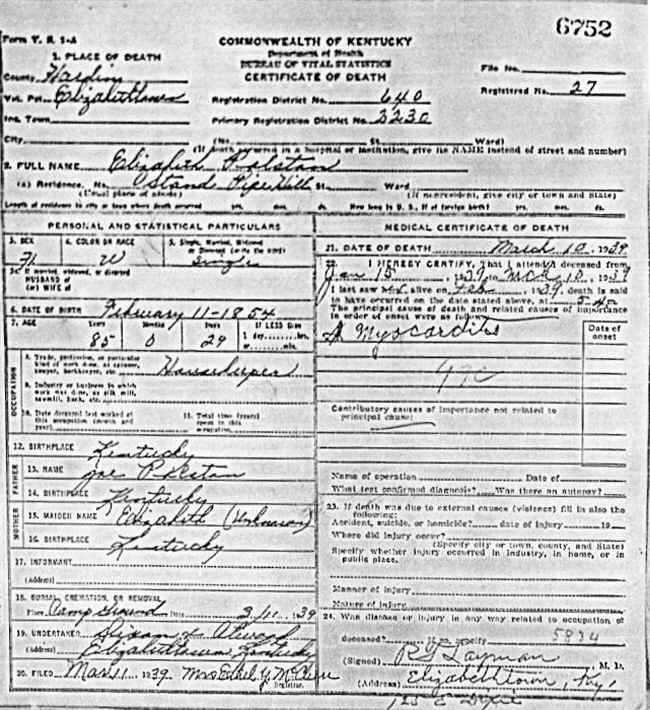 6752
Form V. S. 1-A
COMMONWEALTH OF KENTUCKY
Department of Health
BUREAU OF VITAL STATISTICS
CERTIFICATE OF DEATH
1. PLACE OF DEATH
County Hardin
Vot. Pct. Elizabethtown
Inc. Town
City
File No.
Registered No. 27
Registration District No. 640
Primary Registration District No. 2230
(No. St. Ward)
(If death occurred in a hospital or institution, give its NAME instead of street and number)
2. FULL NAME Elizabeth Ralston
(a) Residence. No. St. Ward
(Usual place of abode) (If nonresident, give city or town and State)
Length of residence in city or town where death occurred yrs. mos. ds. How long in U. S., if of foreign birth? yrs. mos. ds.
PERSONAL AND STATISTICAL PARTICULARS
3. SEX
4. COLOR OR RACE W
5. Single, Married, Widowed or Divorced (write the word) Single
5a. If married, widowed, or divorced
HUSBAND of
(or) WIFE of
6. DATE OF BIRTH February 11-1854
7. AGE Years Months Days If LESS than
85 0 29 1 day, hrs.
or min.
OCCUPATION
8. Trade, profession, or particular kind of work done, as spinner, sawyer, bookkeeper, etc. Housekeeper
9. Industry or business in which work was done, as silk mill, sawmill, bank, etc.
10. Date deceased last worked at this occupation (month and year)
11. Total time (years) spent in this occupation
12. BIRTHPLACE Kentucky
FATHER
13. NAME Joe Ralston
14. BIRTHPLACE Kentucky
MOTHER
15. MAIDEN NAME Elizabeth (Unknown)
16. BIRTHPLACE Kentucky
17. INFORMANT
(Address)
18. BURIAL, CREMATION, OR REMOVAL
Place Camp Ground Date 3/11, 1939
19. UNDERTAKER Dixon & Atwood
(Address) Elizabethtown, Kentucky
20. FILED Mar 11 1939 Mrs Ethel Y. McClure
Registrar.
MEDICAL CERTIFICATE OF DEATH
21. DATE OF DEATH March 10, 1939
22. I HEREBY CERTIFY, That I attended deceased from
Jan 15, 1939, to Mch 10, 1939
I last saw alive on Feb, 1939, death is said
to have occurred on the date stated above, at 5-40
The principal cause of death and related causes of importance
in order of onset were as follows:
Date of onset
Myocarditis
Contributory causes of importance not related to
principal cause:
Name of operation Date of
What test confirmed diagnosis? Was there an autopsy?
23. If death was due to external causes (violence) fill in also the
following:
Accident, suicide, or homicide? date of injury 19
Where did injury occur?
(Specify city or town, county, and State)
Specify whether injury occurred in industry, in home, or in
public place.
Manner of injury
Nature of injury
24. Was disease or injury in any way related to occupation of
deceased? If so, specify
(Signed) R. T. Layman, M. D.
(Address) Elizabethtown, Ky.